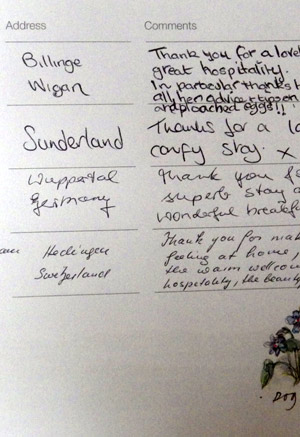 Address Comments
Billinge
Wigan
Thank you for a love
great hospitality.
In particular thanks t
all her advice tips on
and proached eggs!!
Sunderland
Thanks for a lo
comfy stay. x
Wuppertal
Germany
Thank you fo
superb stay a
Wonderful breakfa
Hedingen
Switzerland
Thank you for mak
feeling at home,
the warm wellcom
hospitality, the beauty
Dog